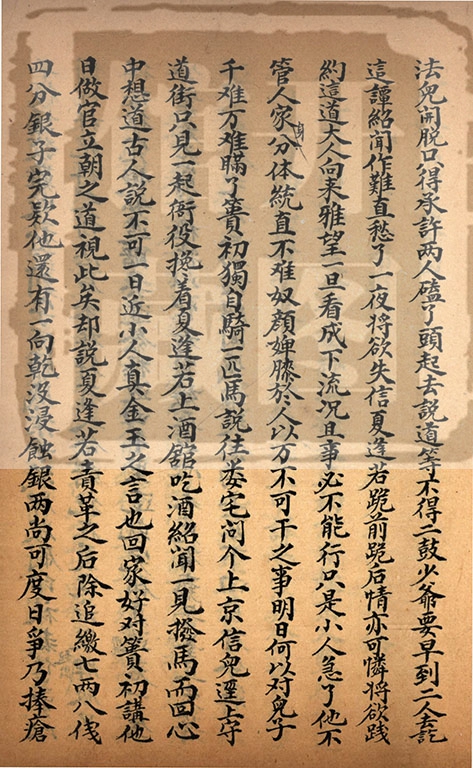 法兒開脫只得承許两人磕了頭起去說道等不得二鼓少爺要早到二人去訖
這譚紹聞作難直愁了一夜將欲失信夏逢若跪前跪后情亦可憐將欲践
約這道大人向来雅望一旦看成下流况且事必不能行只是小人急了他不
管人家身分体統直不难奴顔婢膝於人以万不可干之事明日何以对兒子
千难万难瞞了簣初獨自騎一匹馬說往娄宅问个上京信兒逕上守
道街只見一起衙役搀着夏逢若上酒舘吃酒紹聞一見撥馬而回心
中想道古人說不可一日近小人真金玉之言也回家好对簣初講他
日做官立朝之道視此矣却說夏逢若責革之后除追缴七两八伐
四分銀子完欵他還有一向乾没浸蝕銀两尚可度日爭乃捧瘡